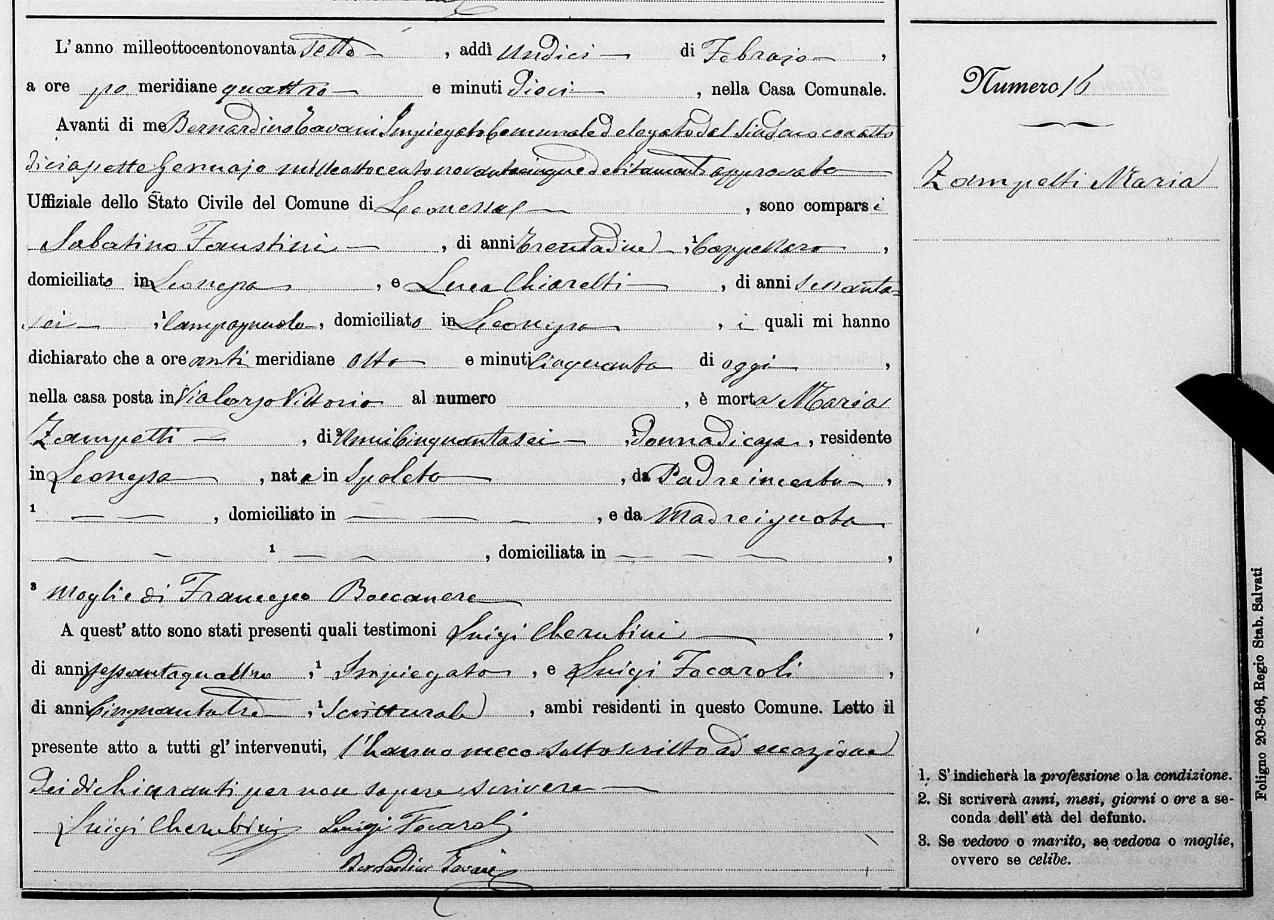 L'anno milleottocentonovanta sette, addì undici di Febrajo,
a ore po meridiane quattro e minuti dieci, nella Casa Comunale.
Avanti di me Bernardino Tavani Impiegato Comunale delegato dal Sindaco con atto
diciasette Gennajo milleottocentonovantacinque debitamente approvato
Uffiziale dello Stato Civile del Comune di Leonessa, sono comparsi
Sabatino Faustini, di anni trentadue, ¹
domiciliato in Leonessa, e Luca Chiaretti, di anni sessanta
sei, ¹ Campagnolo, domiciliato in Leonessa, i quali mi hanno
dichiarato che a ore anti meridiane otto e minuti cinquanta di oggi,
nella casa posta in Via Corso Vittorio al numero , è morta Maria
Zampetti, di ² anni cinquantasei, ¹ donna di casa, residente
in Leonessa, nata in Spoleto, da Padre incerto,
¹ — —, domiciliato in — — —, e da Madre ignota
— — — ¹ — — —, domiciliata in — — —,
³ Moglie di Francesco Boccanera
A quest' atto sono stati presenti quali testimoni Luigi Cherubini,
di anni sessantaquattro, ¹ Impiegato, e Luigi Focaroli,
di anni cinquantatre, ¹ Scritturale, ambi residenti in questo Comune. Letto il
presente atto a tutti gl' intervenuti, l'hanno meco sottoscritto ad eccezione
dei dichiaranti per non sapere scrivere
Luigi Cherubini Luigi Focaroli
Bernardino Tavani
Numero 16
Zampetti Maria
1. S' indicherà la professione o la condizione.
2. Si scriverà anni, mesi, giorni o ore a se-
conda dell' età del defunto.
3. Se vedovo o marito, se vedova o moglie,
ovvero se celibe.
Foligno 20-8-96, Regio Stab. Salvati